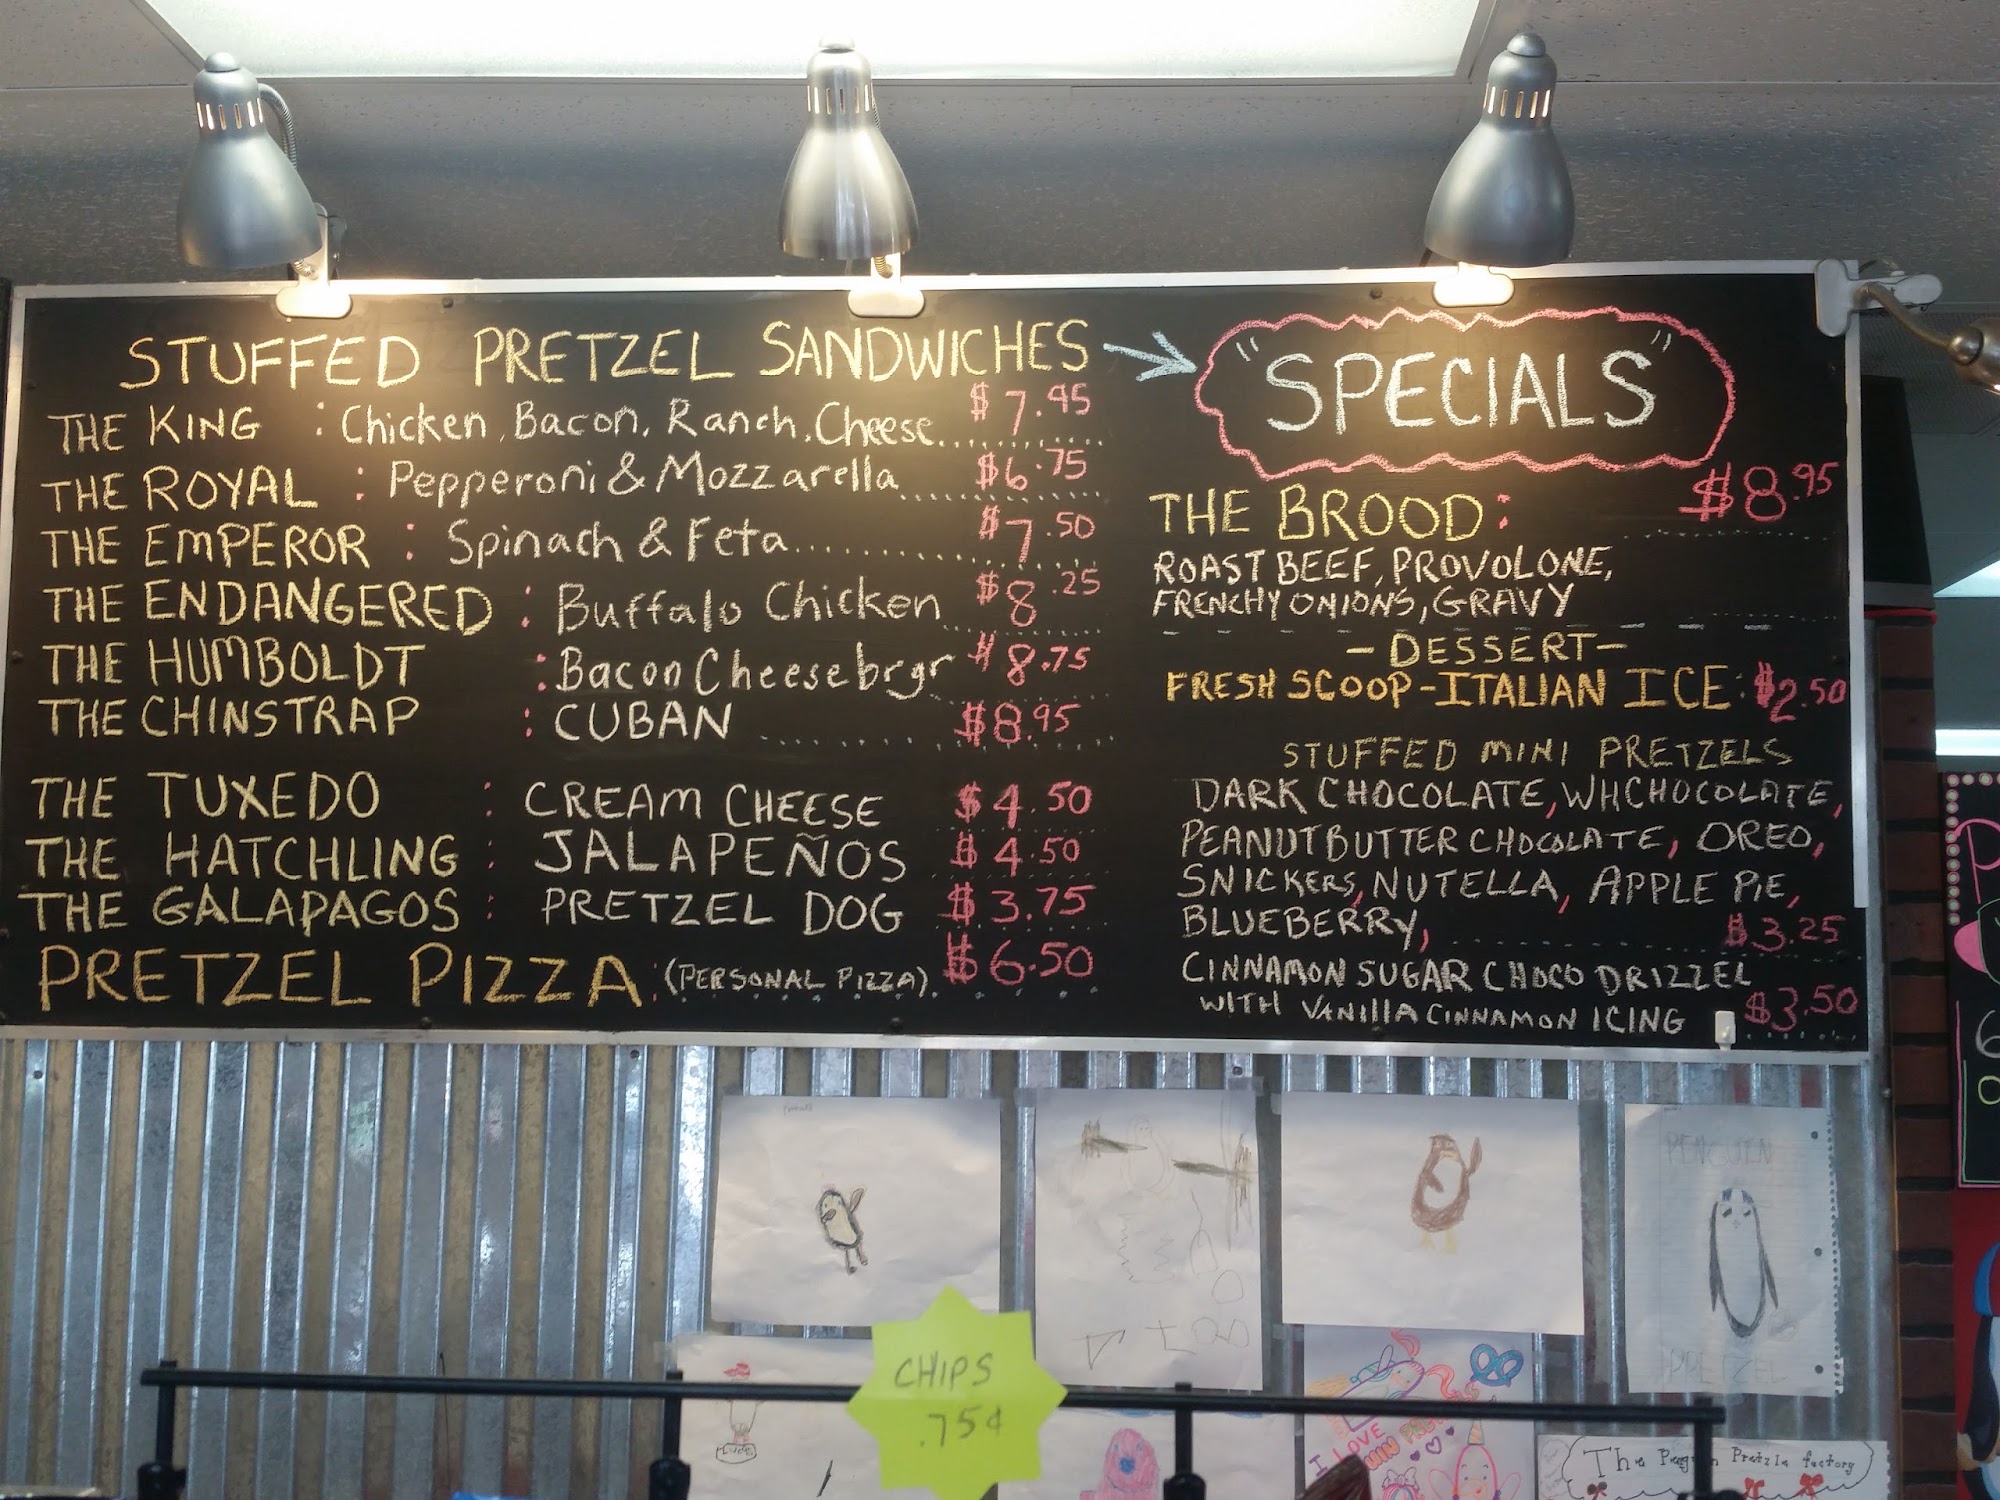 STUFFED PRETZEL SANDWICHES
THE KING : Chicken, Bacon, Ranch, Cheese $7.95
THE ROYAL : Pepperoni & Mozzarella $6.75
THE EMPEROR : Spinach & Feta $7.50
THE ENDANGERED : Buffalo Chicken $8.25
THE HUMBOLDT : Bacon Cheesebrgr $8.75
THE CHINSTRAP : CUBAN $8.95
THE TUXEDO : CREAM CHEESE $4.50
THE HATCHLING : JALAPEÑOS $4.50
THE GALAPAGOS : PRETZEL DOG $3.75
PRETZEL PIZZA : (PERSONAL PIZZA) $6.50
"SPECIALS"
THE BROOD : $8.95
ROAST BEEF, PROVOLONE,
FRENCHY ONIONS, GRAVY
- DESSERT -
FRESH SCOOP - ITALIAN ICE : $2.50
STUFFED MINI PRETZELS
DARK CHOCOLATE, WHCHOCOLATE,
PEANUT BUTTER CHOCOLATE, OREO,
SNICKERS, NUTELLA, APPLE PIE,
BLUEBERRY, $3.25
CINNAMON SUGAR CHOCO DRIZZEL
WITH VANILLA CINNAMON ICING $3.50
PENGUIN
PRETZEL
CHIPS
.75¢
I LOVE
The Pretzle factory